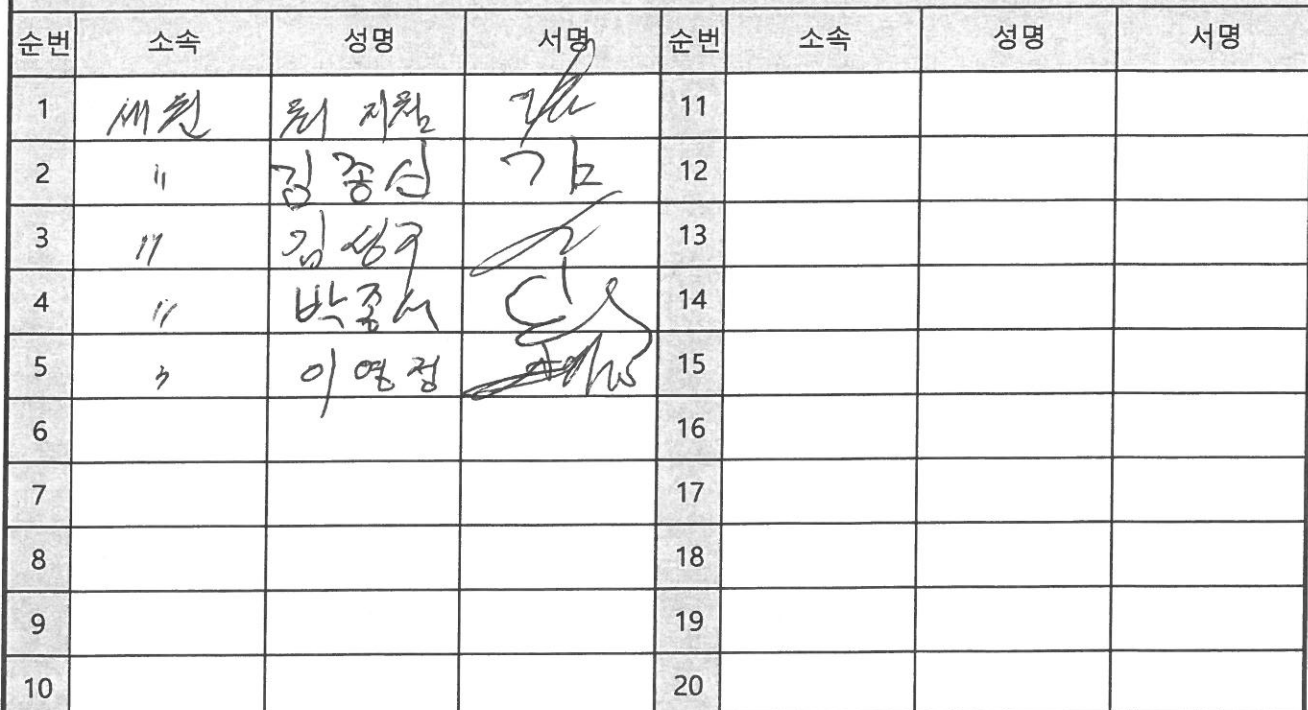 순번 소속 성명 서명 순번 소속 성명 서명
1 세원 11
2 〃 김종신 김 12
3 〃 김성주 13
4 〃 박종서 14
5 〃 이영정 15
6 16
7 17
8 18
9 19
10 20